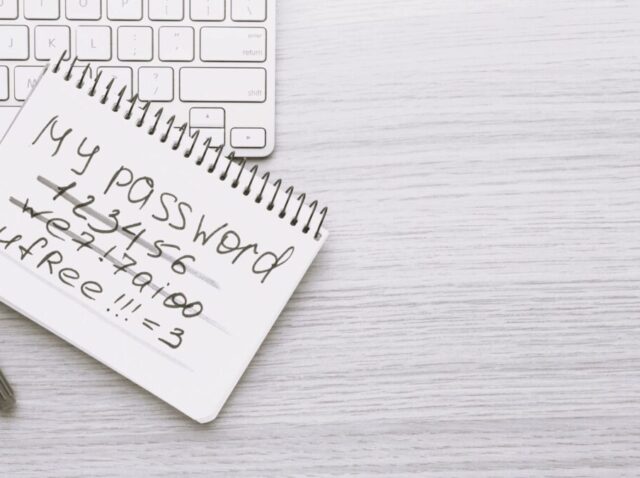 J K L : ; " ' enter return
? / shift
My password
123456
we7!7aioo
ufRee!!!=3